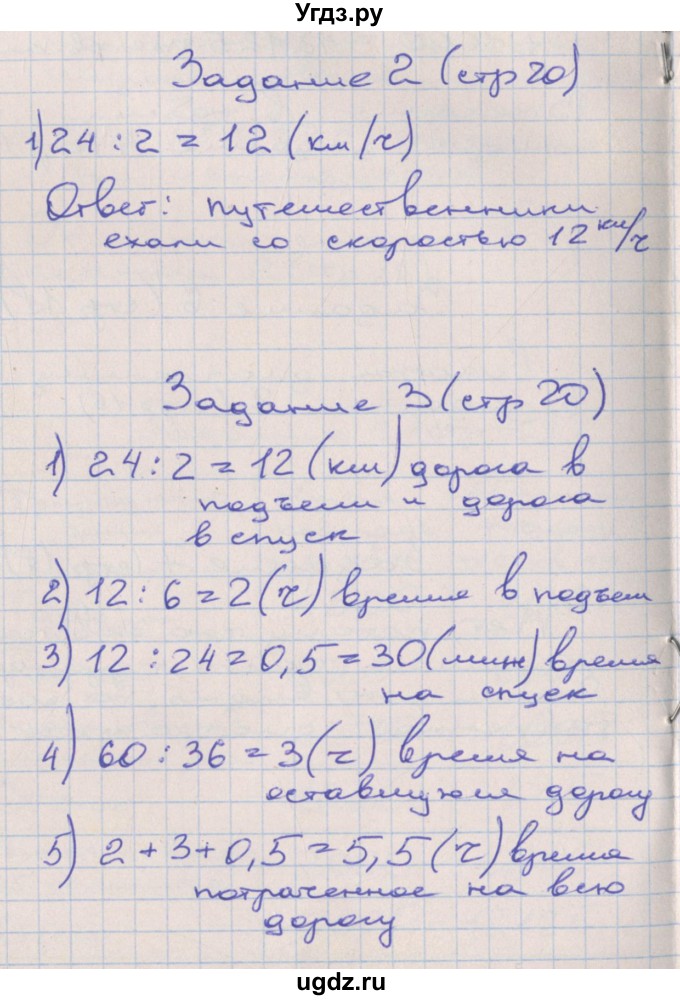 Угдз.ру
Задание 2 (стр 20)
1) 24 : 2 = 12 (км/ч)
Ответ: путешественники
ехали со скоростью 12 км/ч
Задание 3 (стр 20)
1) 24 : 2 = 12 (км) дорога в
подъем и дорога
в спуск
2) 12 : 6 = 2 (ч) время в подъем
3) 12 : 24 = 0,5 = 30 (мин) время
на спуск
4) 60 : 36 = 3 (ч) время на
оставшуюся дорогу
5) 2 + 3 + 0,5 = 5,5 (ч) время
потраченное на всю
дорогу
ugdz.ru